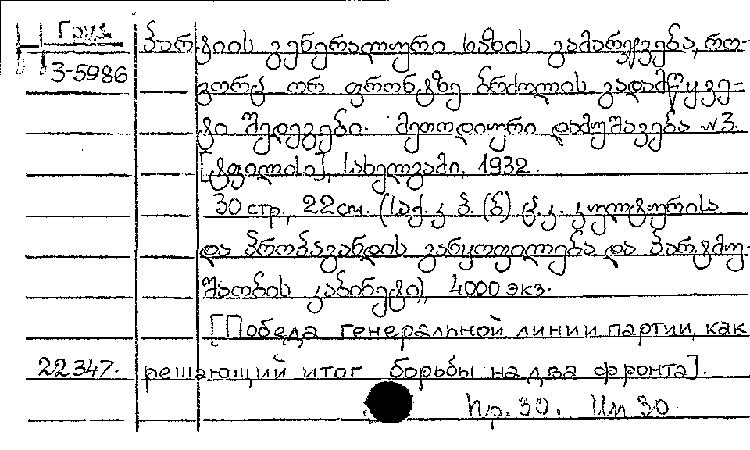 Груз.
3-5986
პარტიის გენერალური ხაზის გამარჯვება, რო-
გორც ორ ფრონტზე ბრძოლის გადამწყვე-
ტი შედეგები. მეთოდიური დამუშავება №3.
[ტფილისი], სახელგამი, 1932.
30 стр., 22 см. (საქ. კ.პ.(ბ) ც.კ. კულტურისა
და პროპაგანდის განყოფილება და პარტმუ-
შაობის კაბინეტი), 4000 экз.
[Победа генеральной линии партии, как
22347. решающий итог борьбы на два фронта].
Пр. 30. Ип 30